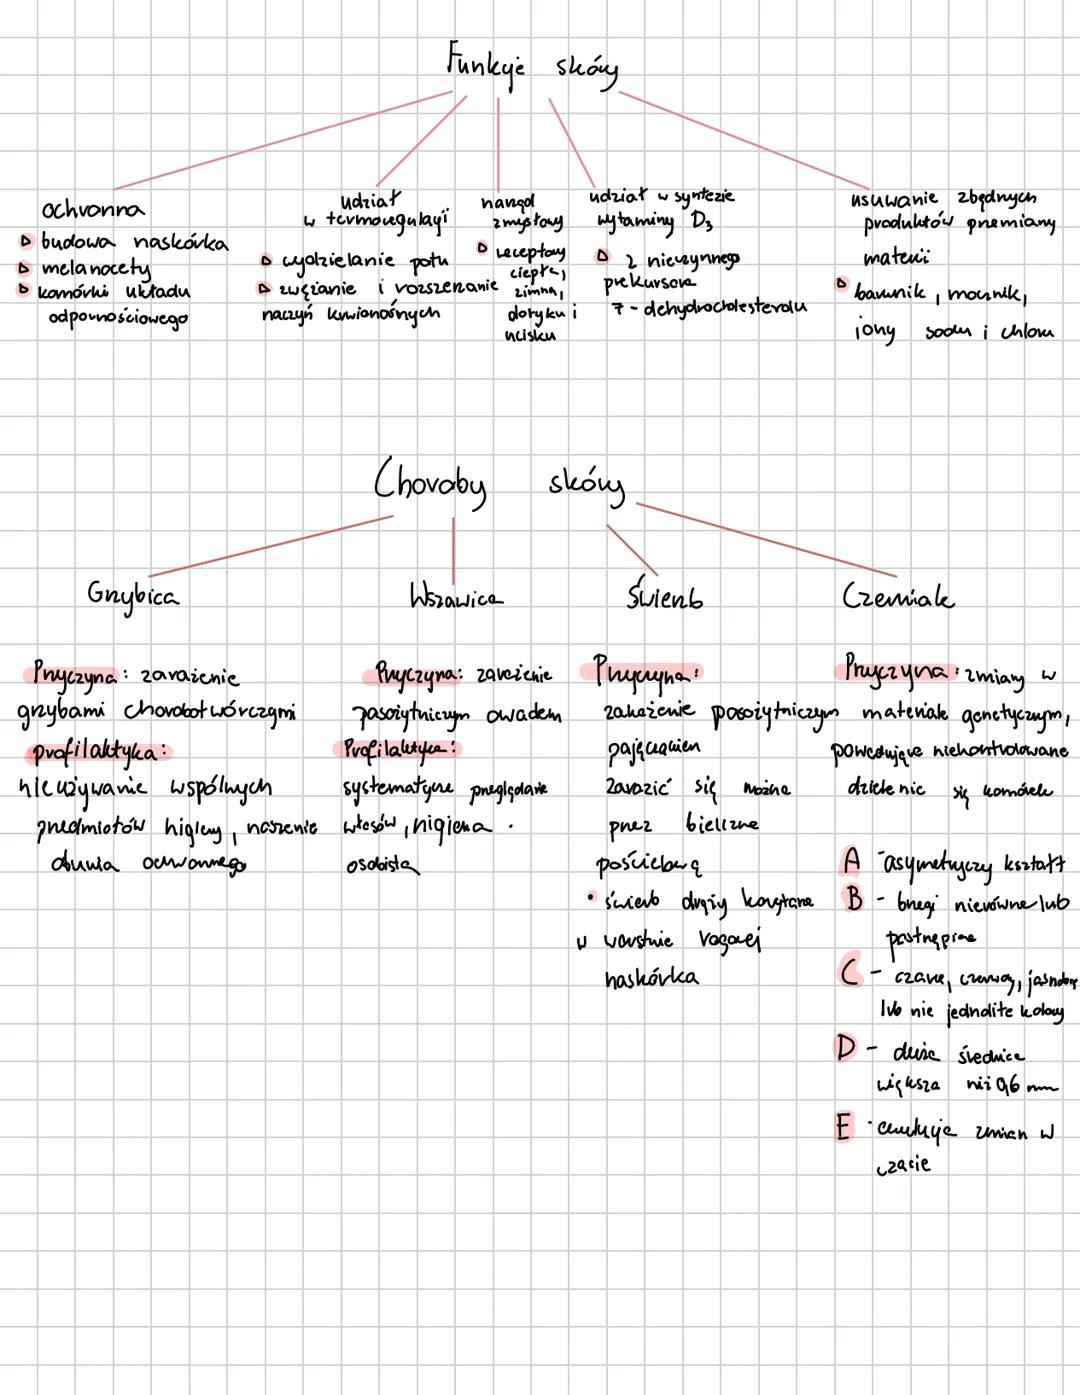 Funkcje skóry
ochronna
budowa naskórka
melanocety
komórki układu
odpornościowego
udział
w termoregulacji
wydzielanie potu
zwężanie i rozszerzanie
naczyń krwionośnych
narząd
zmysłowy
receptory
ciepła,
zimna,
dotyku i
ucisku
udział w syntezie
wytaminy D₃
z nieczynnego
prekursora
7-dehydrocholesterolu
usuwanie zbędnych
produktów przemiany
materii
barwnik, mocznik,
jony sodu i chloru
Choroby skóry
Grzybica
Przyczyna: zarażenie
grzybami chorobotwórczymi
profilaktyka:
nieużywanie wspólnych
przedmiotów higieny, noszenie
obuwia ochronnego
Wszawica
Przyczyna: zarażenie
pasożytniczym owadem
Profilaktyka:
systematyczne przeglądanie
włosów, higiena
osobista
Świerzb
Przyczyna:
zakażenie pasożytniczym
pajęczakiem
Zarazić się można
przez bieliznę
pościelową
• świerzb drąży korytarze
w warstwie rogowej
naskórka
Czerniak
Przyczyna: zmiany w
materiale genetycznym,
powodujące niekontrolowane
dzielenie się komórek
A - asymetryczy kształt
B - brzegi nierówne lub
postrzępione
C - czarny, czerwony,
lub nie jednolite kolory
D - duża średnica
większa niż 0,6 mm
E - ewolucja zmian w
czasie